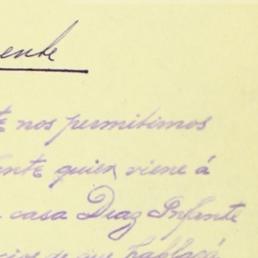 ente
te nos permitimos
ente quien viene á
casa Diaz Infante
de que hablará